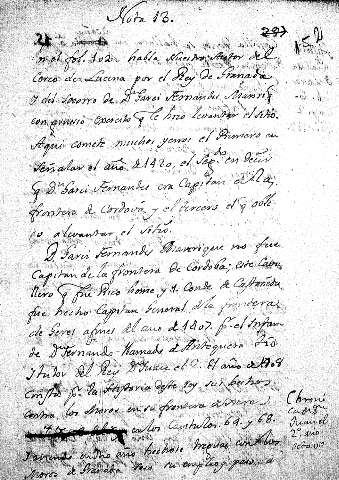 Nota 13.
287
152
51
n el fol. 102. habla Nuestro Autor del
Cerco de Lucena por el Rey de Granada
y del socorro de Dn Garci Fernandes Manrriq
con grueso exercito q le hizo levantar el sitio
Aqui comete muchos yerros el Primero en
Señalar el año de 1420, el segdo en decir
q Dn Garci Fernandes era Capitan de la
frontera de Cordova y el tercero el q
a levantar el sitio.
D. Garci Fernandes Manrrique no fue
Capitan de la frontera de Cordoba; este Cava
llero q fue Rico home y 1. Conde de Castañeda
fue hecho Capitan General de la frontera
de Geres a fines del año de 1407. pr el Infan
te Dn Fernando llamado de Antequera Tio
y tutor del Rey Dn Juan el 2. El año de 1408
pr la Historia de este Rey sus hechos
contra los Moros en su frontera de Jeres
en los Capitulos 64. y 68.
año hechose treguas con los
Moros de Granada
Chroni
ca del Rey
Juan el
2º año